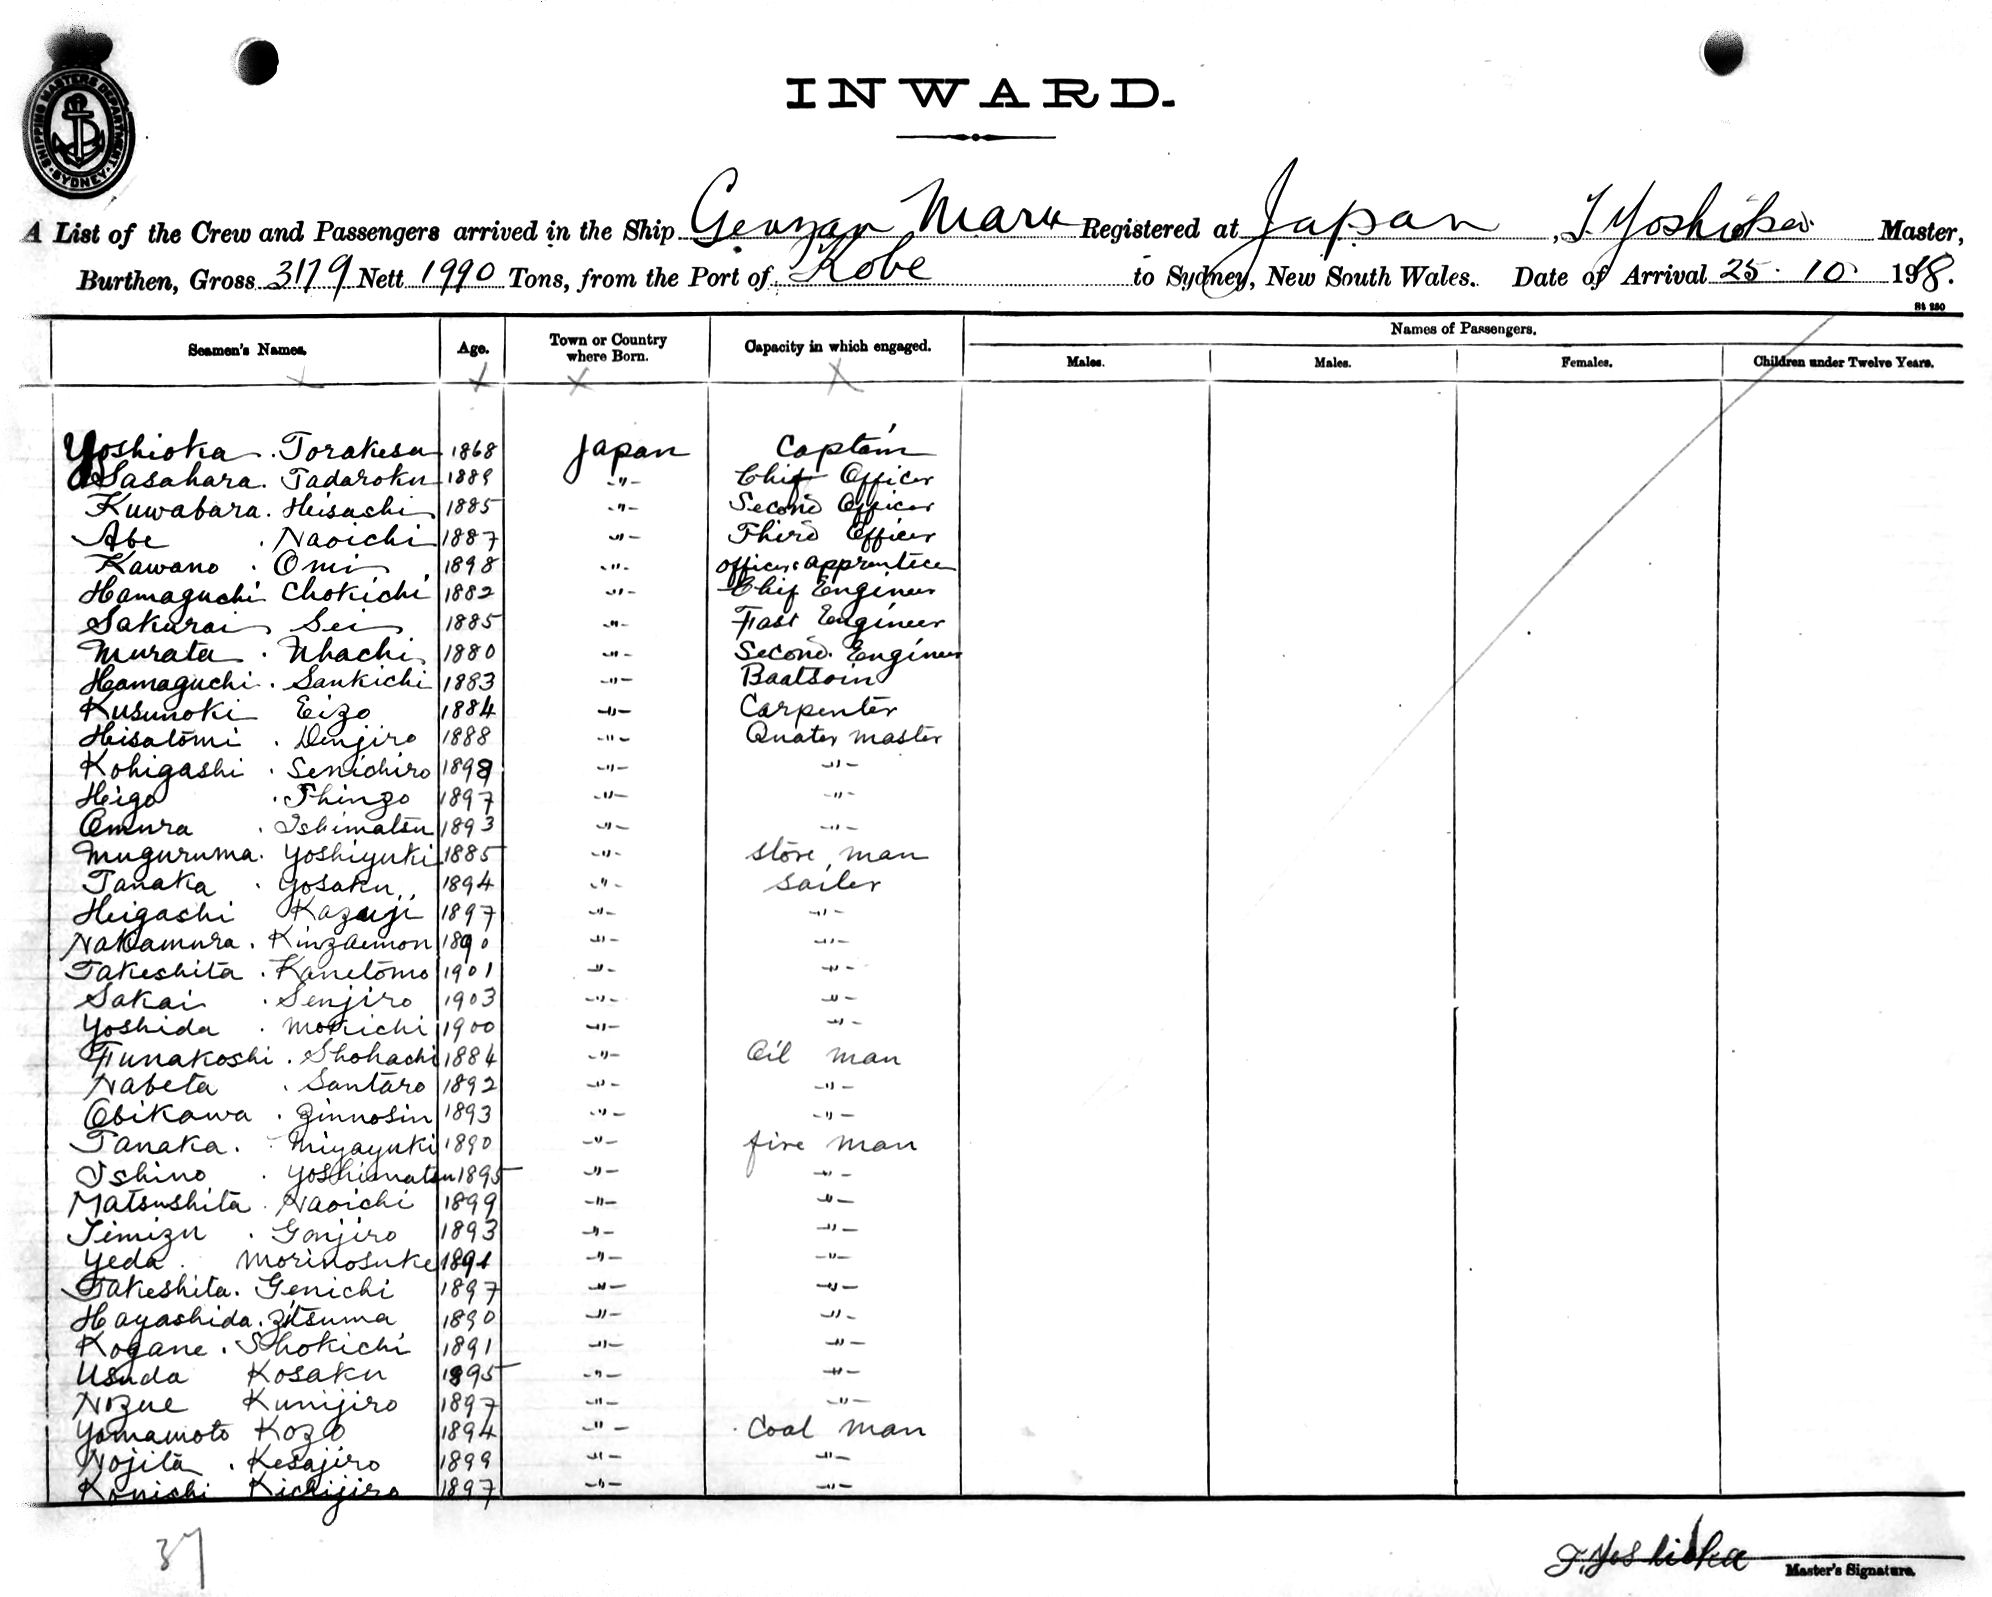 SHIPPING MASTERS DEPARTMENT
SYDNEY
INWARD.
A List of the Crew and Passengers arrived in the Ship Genzan Maru Registered at Japan, T. Yoshioka Master,
Burthen, Gross 3179 Nett 1990 Tons, from the Port of Kobe to Sydney, New South Wales. Date of Arrival 25. 10. 1918.
St 250
Names of Passengers.
Seamen's Names. Age. Town or Country where Born. Capacity in which engaged. Males. Males. Females. Children under Twelve Years.
Yoshioka . Torakesu 1868 Japan Captain
Sasahara . Tadaroku 1889 -"- Chif Officer
Kuwabara . Heisachi 1885 -"- Second Officer
Abe . Naoichi 1887 -"- Third Officer
Kawano . Omi 1898 -"- officers apprentice
Hamaguchi Chokichi 1882 -"- Chif Engineer
Sakurai Sei 1885 -"- Fast Engineer
Murata . Uhachi 1880 -"- Second Engineer
Hamaguchi . Sankichi 1883 -"- Baatsoin
Kusunoki Eizo 1884 -"- Carpenter
Hisatomi . Denjiro 1888 -"- Quater master
Kohigashi . Senichiro 1898 -"- -"-
Heigo . Shinzo 1897 -"- -"-
Omura . Ishimatsu 1893 -"- -"-
Muguruma . Yoshiyuki 1885 -"- store man
Tanaka . Yosaku 1894 -"- sailer
Heigashi Kazuji 1897 -"- -"-
Nakamura . Kinzaemon 1890 -"- -"-
Takeshita . Kanetomo 1901 -"- -"-
Sakai . Senjiro 1903 -"- -"-
Yoshida . Mokichi 1900 -"- -"-
Funakoshi . Shohachi 1884 -"- Oil man
Nabeta . Santaro 1892 -"- -"-
Obikawa . Zinnosin 1893 -"- -"-
Tanaka . Miyayuki 1890 -"- fire man
Ishino . Yoshimatsu 1895 -"- -"-
Matsushita . Naoichi 1899 -"- -"-
Simizu . Gonjiro 1893 -"- -"-
Yeda . Morinosuke 1891 -"- -"-
Takeshita . Genichi 1897 -"- -"-
Hayashida . Zitsuma 1890 -"- -"-
Kogane . Shokichi 1891 -"- -"-
Usuda Kosaku 1895 -"- -"-
Nozue Kunijiro 1897 -"- -"-
Yamamoto Kozo 1894 -"- Coal man
Nojita . Kesajiro 1899 -"- -"-
Konishi Kichijiro 1897 -"- -"-
37
T. Yoshioka
Master's Signature.